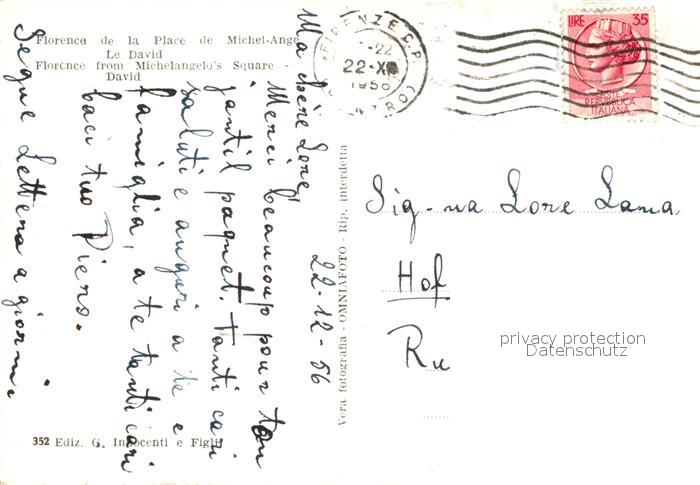 Florence de la Place de Michel-Ange
Le David
Florence from Michelangelo's Square -
David
FIRENZE C.P.
22-XII
1956
(CENTRO)
LIRE 35
POSTE
REPVBBLICA
ITALIANA
Ma chère Lore!
Merci beaucoup pour ton
jantil paquet. Tanti cari
saluti e auguri a te e
famiglia, a te tanti cari
baci tuo Piero.
Segue Lettera a giorni.
22-12-56
Vera fotografia - OMNIAFOTO - Rip. interdetta
Sig-na Lore Lama
Hof
Ru
privacy protection
Datenschutz
352 Ediz. G. Innocenti e Figli